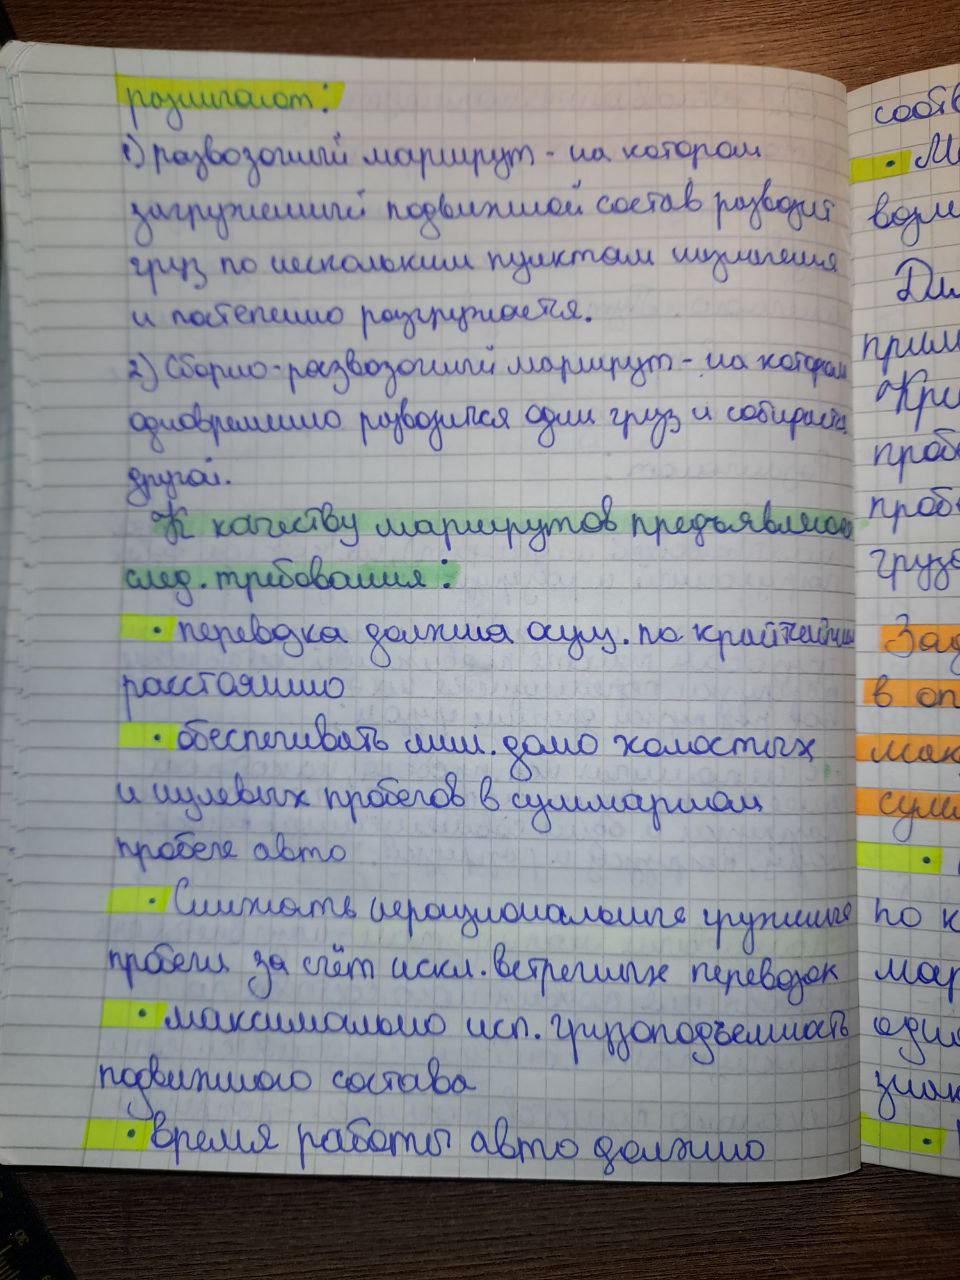 различают:
1) развозочный маршрут - на котором
загруженный подвижной состав развозит
груз по нескольким пунктам назначения
и постепенно разгружается.
2) Сборно-развозочный маршрут - на котором
одновременно развозится один груз и собирается
другой.
К качеству маршрутов предъявляют
след. требования:
• перевозка должна осущ. по крайтчайшему
расстоянию
• обеспечивать мин. долю холостых
и нулевых пробегов в суммарном
пробеге авто
• Снижать нерациональные груженые
пробеги за счёт искл. встречных перевозок
• максимально исп. грузоподъемность
подвижного состава
• время работы авто должно
соотв
•
Ди
прим
Кри
проб
проб
груз
Зад
в оп
мак
сум
•
по к
мар
один
знак
•